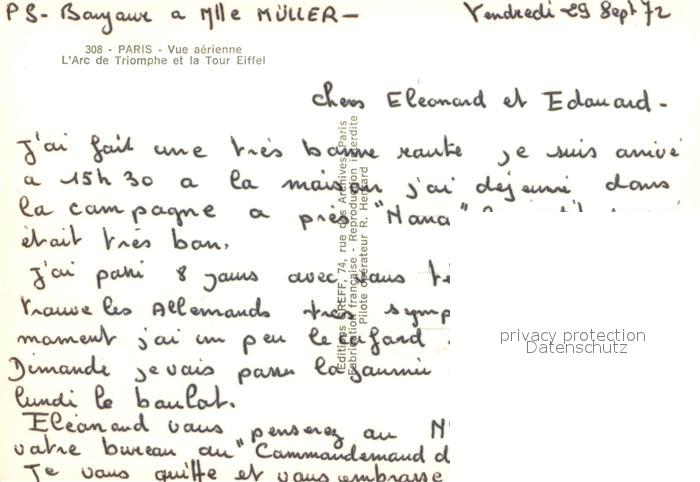 PS- Bonjour a Mlle MÜLLER -
Vendredi 29 Sept 72
308 - PARIS - Vue aérienne
L'Arc de Triomphe et la Tour Eiffel
chers Eléonard et Edouard -
J'ai fait une très bonne route je suis arrivé
a 15h30 a la maison j'ai déjeuné dans
la campagne a près "Nancy"
était très bon.
J'ai passé 8 jours avec vous
trouve les Allemands très symp
moment j'ai un peu le cafard
Dimanche je vais passer la journée
lundi le boulot.
Eléonard vous penserez au N
votre bureau au "Commandemand d
Je vous quitte et vous embrasse
Editions GREFF, 74, rue des Archives, Paris
Fabrication française - Reproduction interdite
Pilote opérateur R. Henrard
privacy protection
Datenschutz